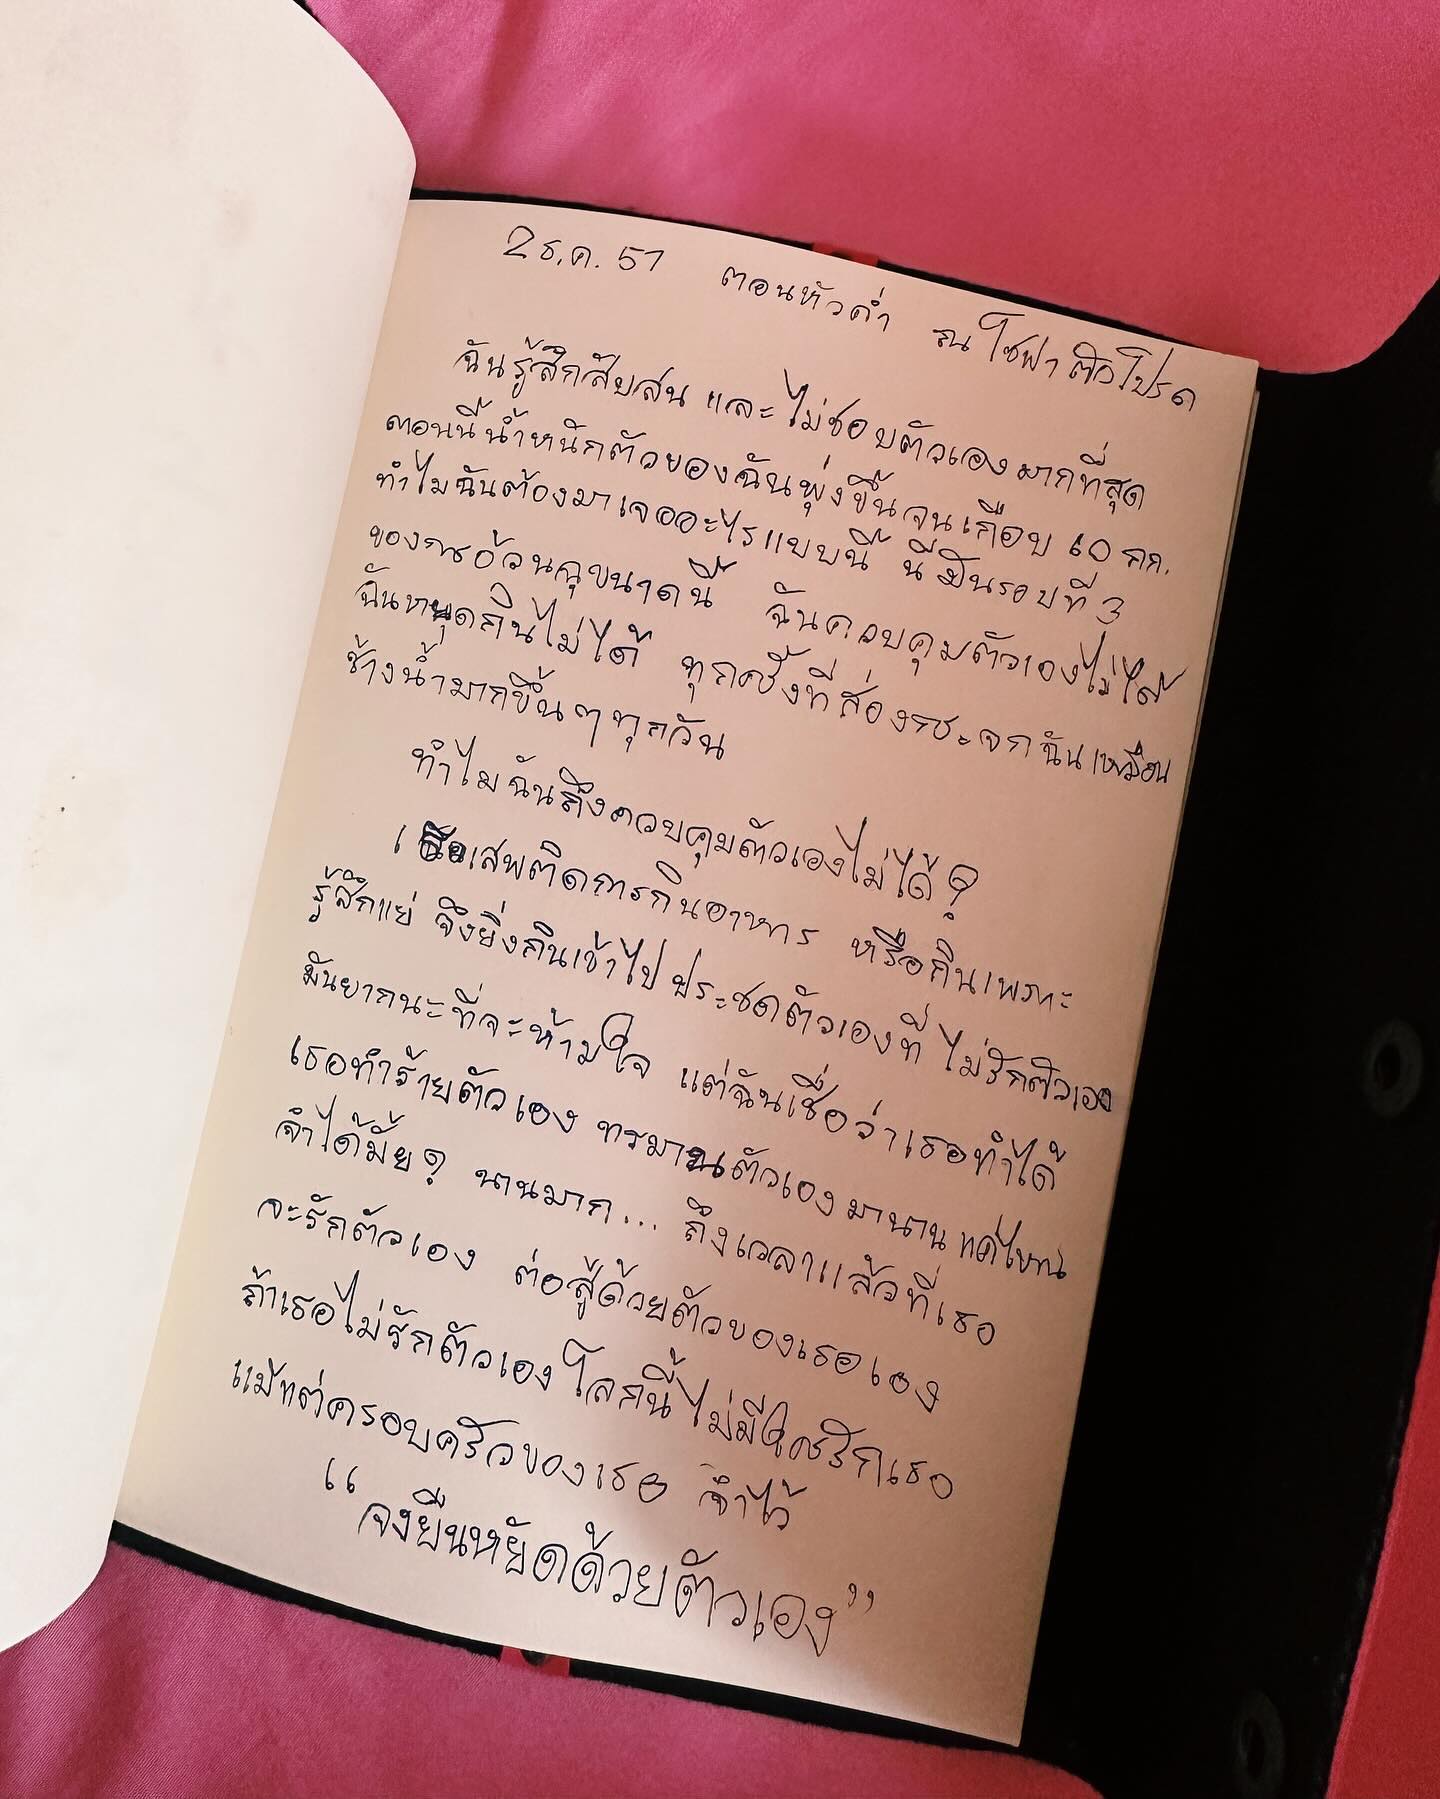 2 ธ.ค. 51 ตอนหัวค่ำ ณ โซฟาตัวโปรด
ฉันรู้สึกสับสน และไม่ชอบตัวเองมากที่สุด
ตอนนี้น้ำหนักตัวของฉันพุ่งขึ้นจนเกือบ 60 กก.
ทำไมฉันต้องมาเจออะไรแบบนี้ นี่มันรอบที่ 3
ของการอ้วนขนาดนี้ ฉันควบคุมตัวเองไม่ได้
ฉันหยุดกินไม่ได้ ทุกครั้งที่ส่องกระจกฉันเหมือน
ช้างน้ำมากขึ้นๆทุกวัน
ทำไมฉันถึงควบคุมตัวเองไม่ได้?
เสพติดการกินอาหาร หรือกินเพราะ
รู้สึกแย่ จึงยิ่งกินเข้าไปประชดตัวเองที่ไม่รักตัวเอง
มันยากนะที่จะห้ามใจ แต่ฉันเชื่อว่าเธอทำได้
เธอทำร้ายตัวเอง ทรมานตัวเองมานานแค่ไหน
จำได้มั้ย? นานมาก... ถึงเวลาแล้วที่เธอ
จะรักตัวเอง ต่อสู้ด้วยตัวของเธอเอง
ถ้าเธอไม่รักตัวเองโลกนี้ไม่มีใครรักเธอ
แม้แต่ครอบครัวของเธอ จำไว้
“จงยืนหยัดด้วยตัวเอง”